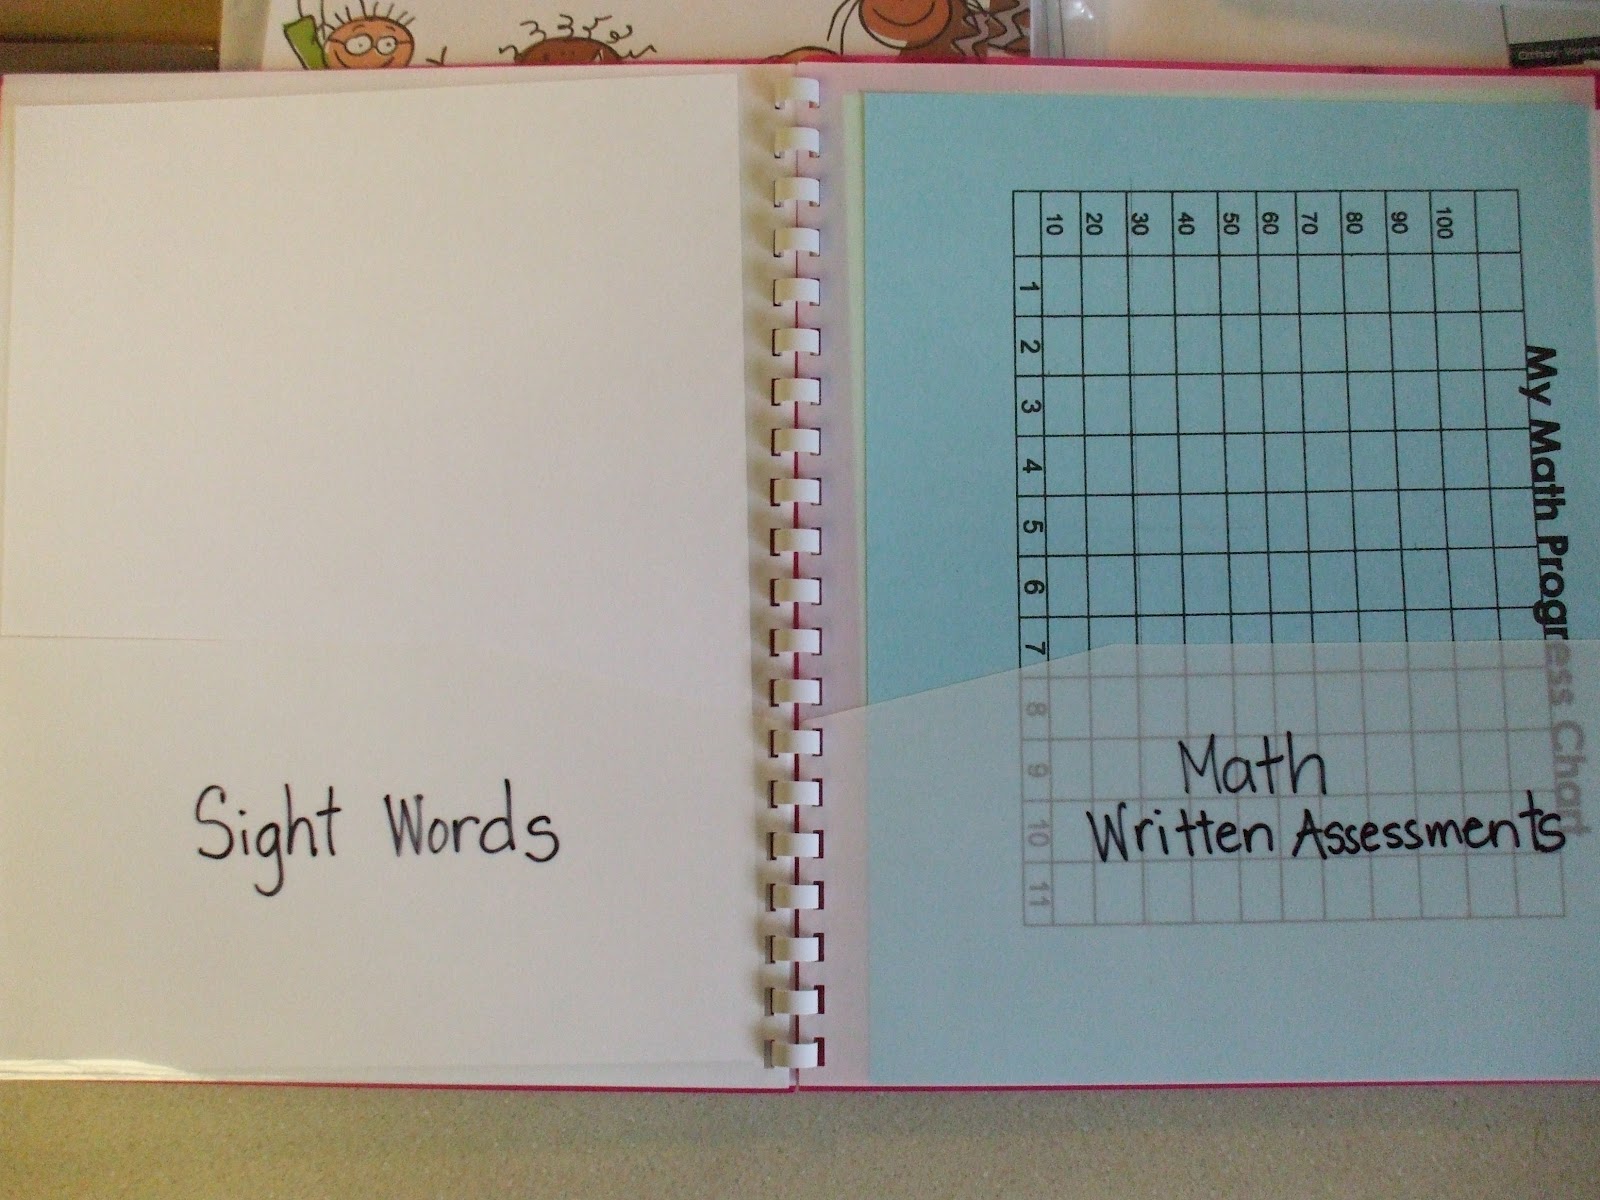 Sight Words
My Math Progress Chart
100
90
80
70
60
50
40
30
20
10
1 2 3 4 5 6 7 8 9 10 11
Math
Written Assessments